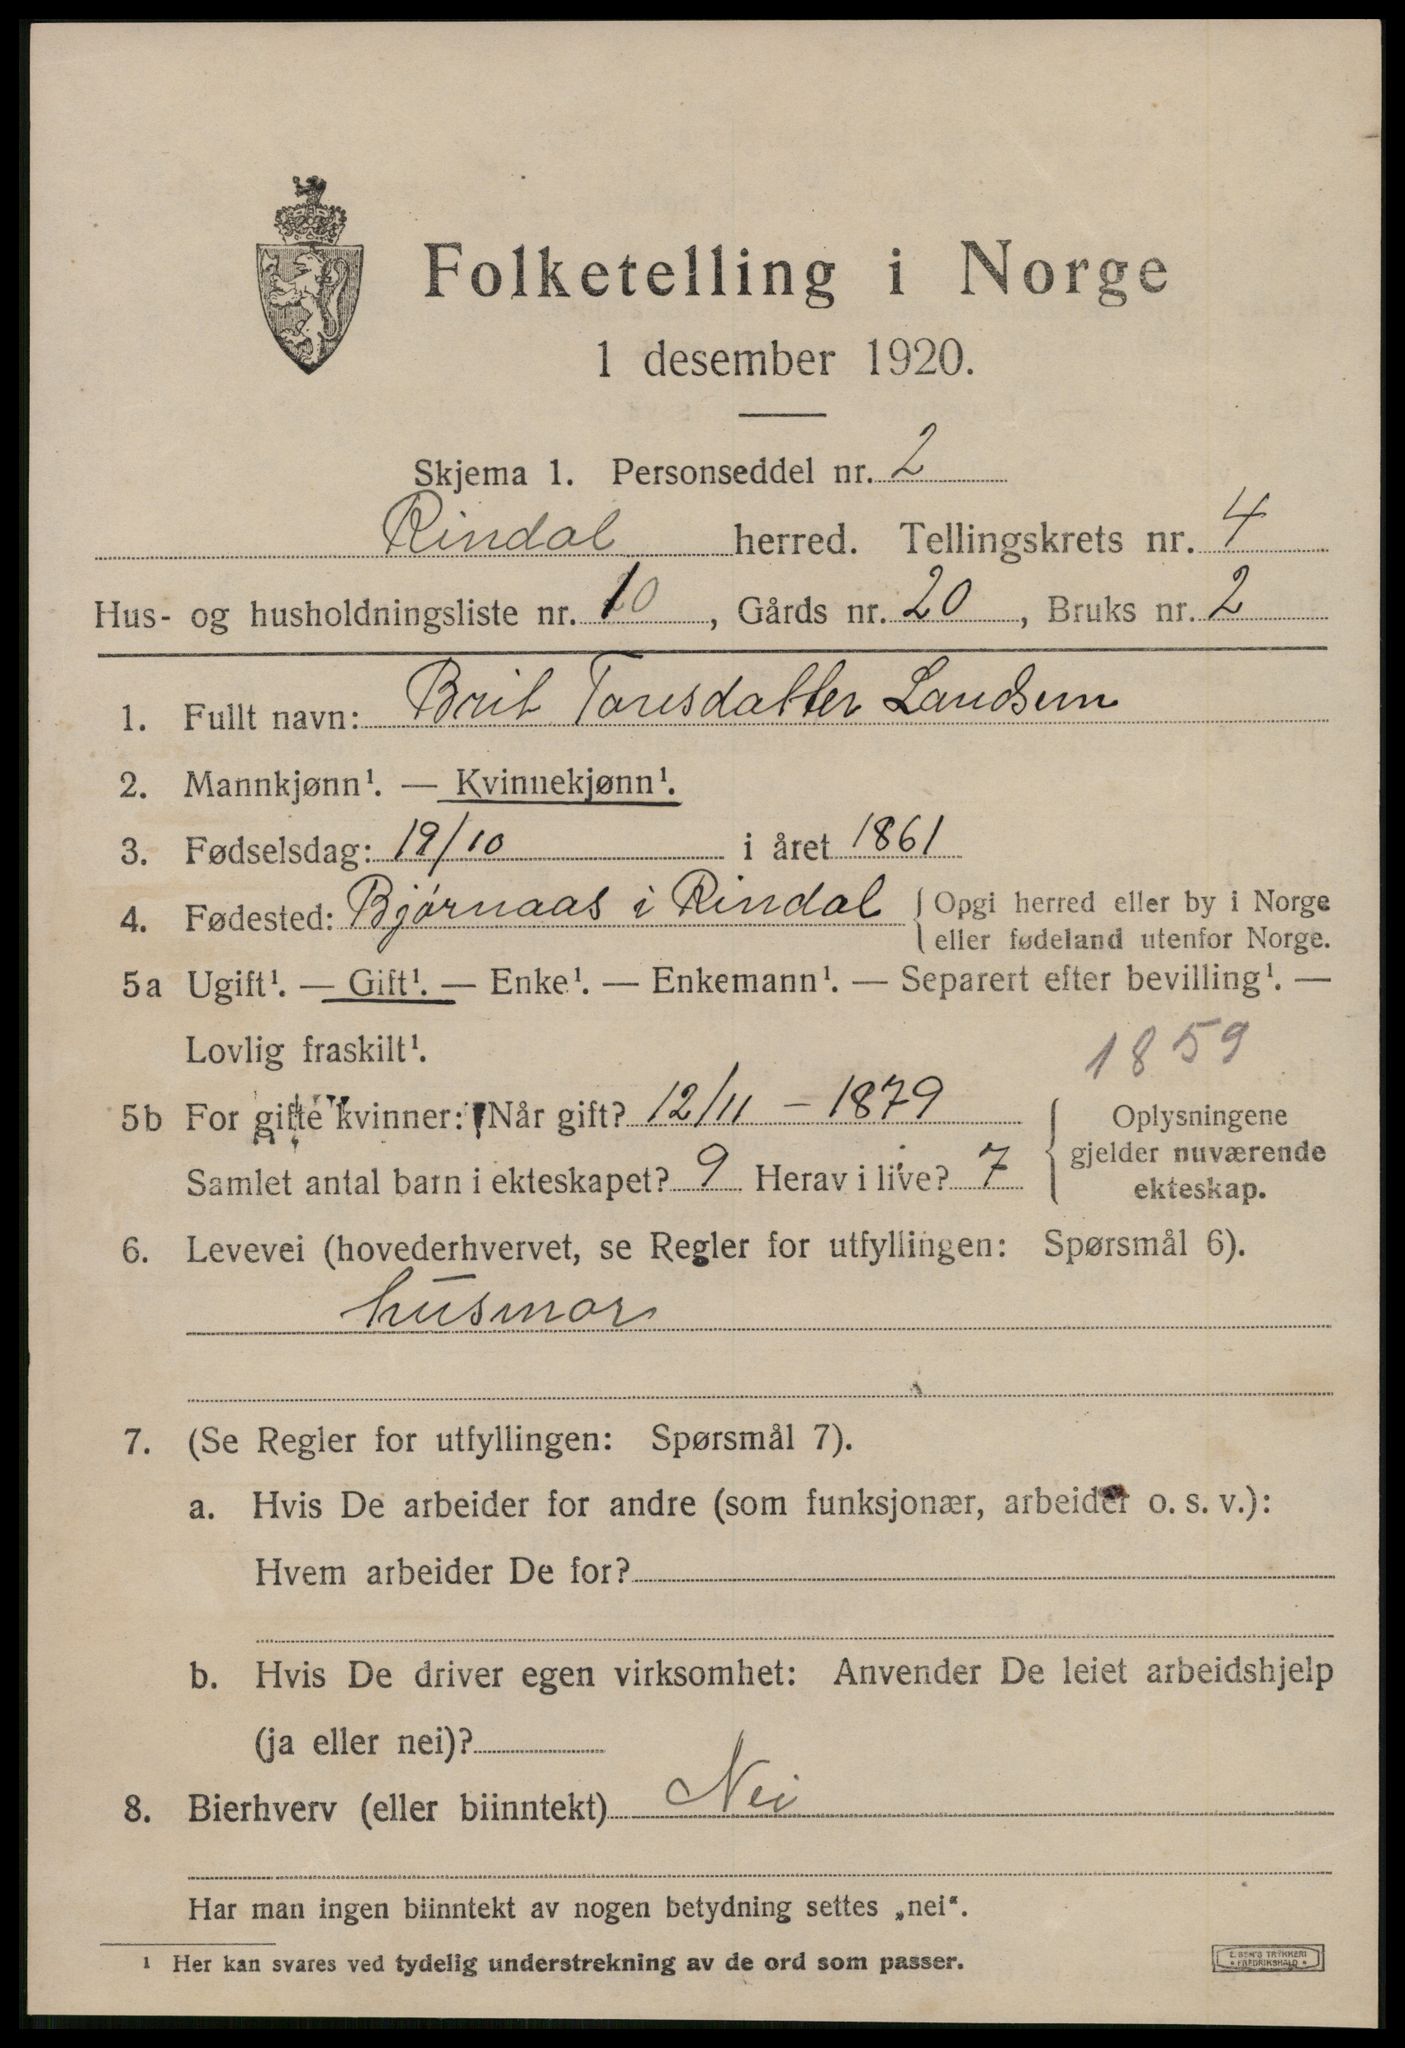 Folketelling i Norge
1 desember 1920.
Skjema 1. Personseddel nr. 2
Rindal herred. Tellingskrets nr. 4
Hus- og husholdningsliste nr. 10, Gårds nr. 20, Bruks nr. 2
1. Fullt navn: Brit Toresdatter Landsem
2. Mannkjønn¹. — Kvinnekjønn¹.
3. Fødselsdag: 19/10 i året 1861
4. Fødested: Bjørnaas i Rindal { Opgi herred eller by i Norge
eller fødeland utenfor Norge.
5a Ugift¹. — Gift¹. — Enke¹. — Enkemann¹. — Separert efter bevilling¹. —
Lovlig fraskilt¹.
1859
5b For gifte kvinner: Når gift? 12/11 – 1879 { Oplysningene
gjelder nuværende
Samlet antal barn i ekteskapet? 9 Herav i live? 7
ekteskap.
6. Levevei (hovederhvervet, se Regler for utfyllingen: Spørsmål 6).
husmor
7. (Se Regler for utfyllingen: Spørsmål 7).
a. Hvis De arbeider for andre (som funksjonær, arbeider o. s. v.):
Hvem arbeider De for?
b. Hvis De driver egen virksomhet: Anvender De leiet arbeidshjelp
(ja eller nei)?
8. Bierhverv (eller biinntekt) Nei
Har man ingen biinntekt av nogen betydning settes „nei“.
¹ Her kan svares ved tydelig understrekning av de ord som passer.
TRYKKERI
FREDRIKSHALD